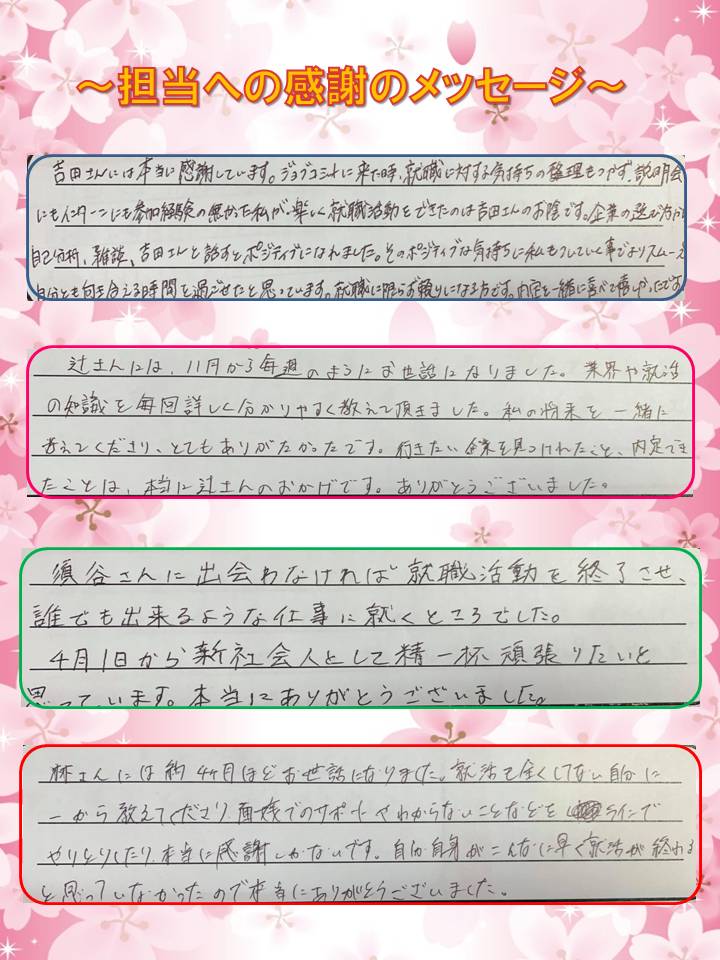 ～担当への感謝のメッセージ～
吉田さんには本当に感謝しています。ジョブコミットに来た時、就職に対する気持ちの整理もつかず、説明会
にもインターンにも参加経験の無かった私が、楽しく就職活動をできたのは吉田さんのお陰です。企業の選び方から
自己分析、雑談、吉田さんと話すとポジティブになれました。そのポジティブな気持ちに私もつられていく事でよりスムーズ
自分とも向き合える時間を過ごせたと思っています。就職に限らず頼りになる方です。内定を一緒に喜べて嬉しかったです
辻さんには、11月から毎週のようにお世話になりました。業界や就活
の知識を毎回詳しく分かりやすく教えて頂きました。私の将来を一緒に
考えてくださり、とてもありがたかったです。行きたい企業を見つけれたこと、内定でき
たことは、本当に辻さんのおかげです。ありがとうございました。
須谷さんに出会わなければ就職活動を終了させ、
誰でも出来るような仕事に就くところでした。
4月1日から新社会人として精一杯頑張りたいと
思っています。本当にありがとうございました。
林さんには約4ヶ月ほどお世話になりました。就活を全くしてない自分に
一から教えてくださり面接でのサポートやわからないことなどをラインで
やりとりしたり本当に感謝しかないです。自分自身がこんなに早く就活が終わる
と思っていなかったので本当にありがとうございました。